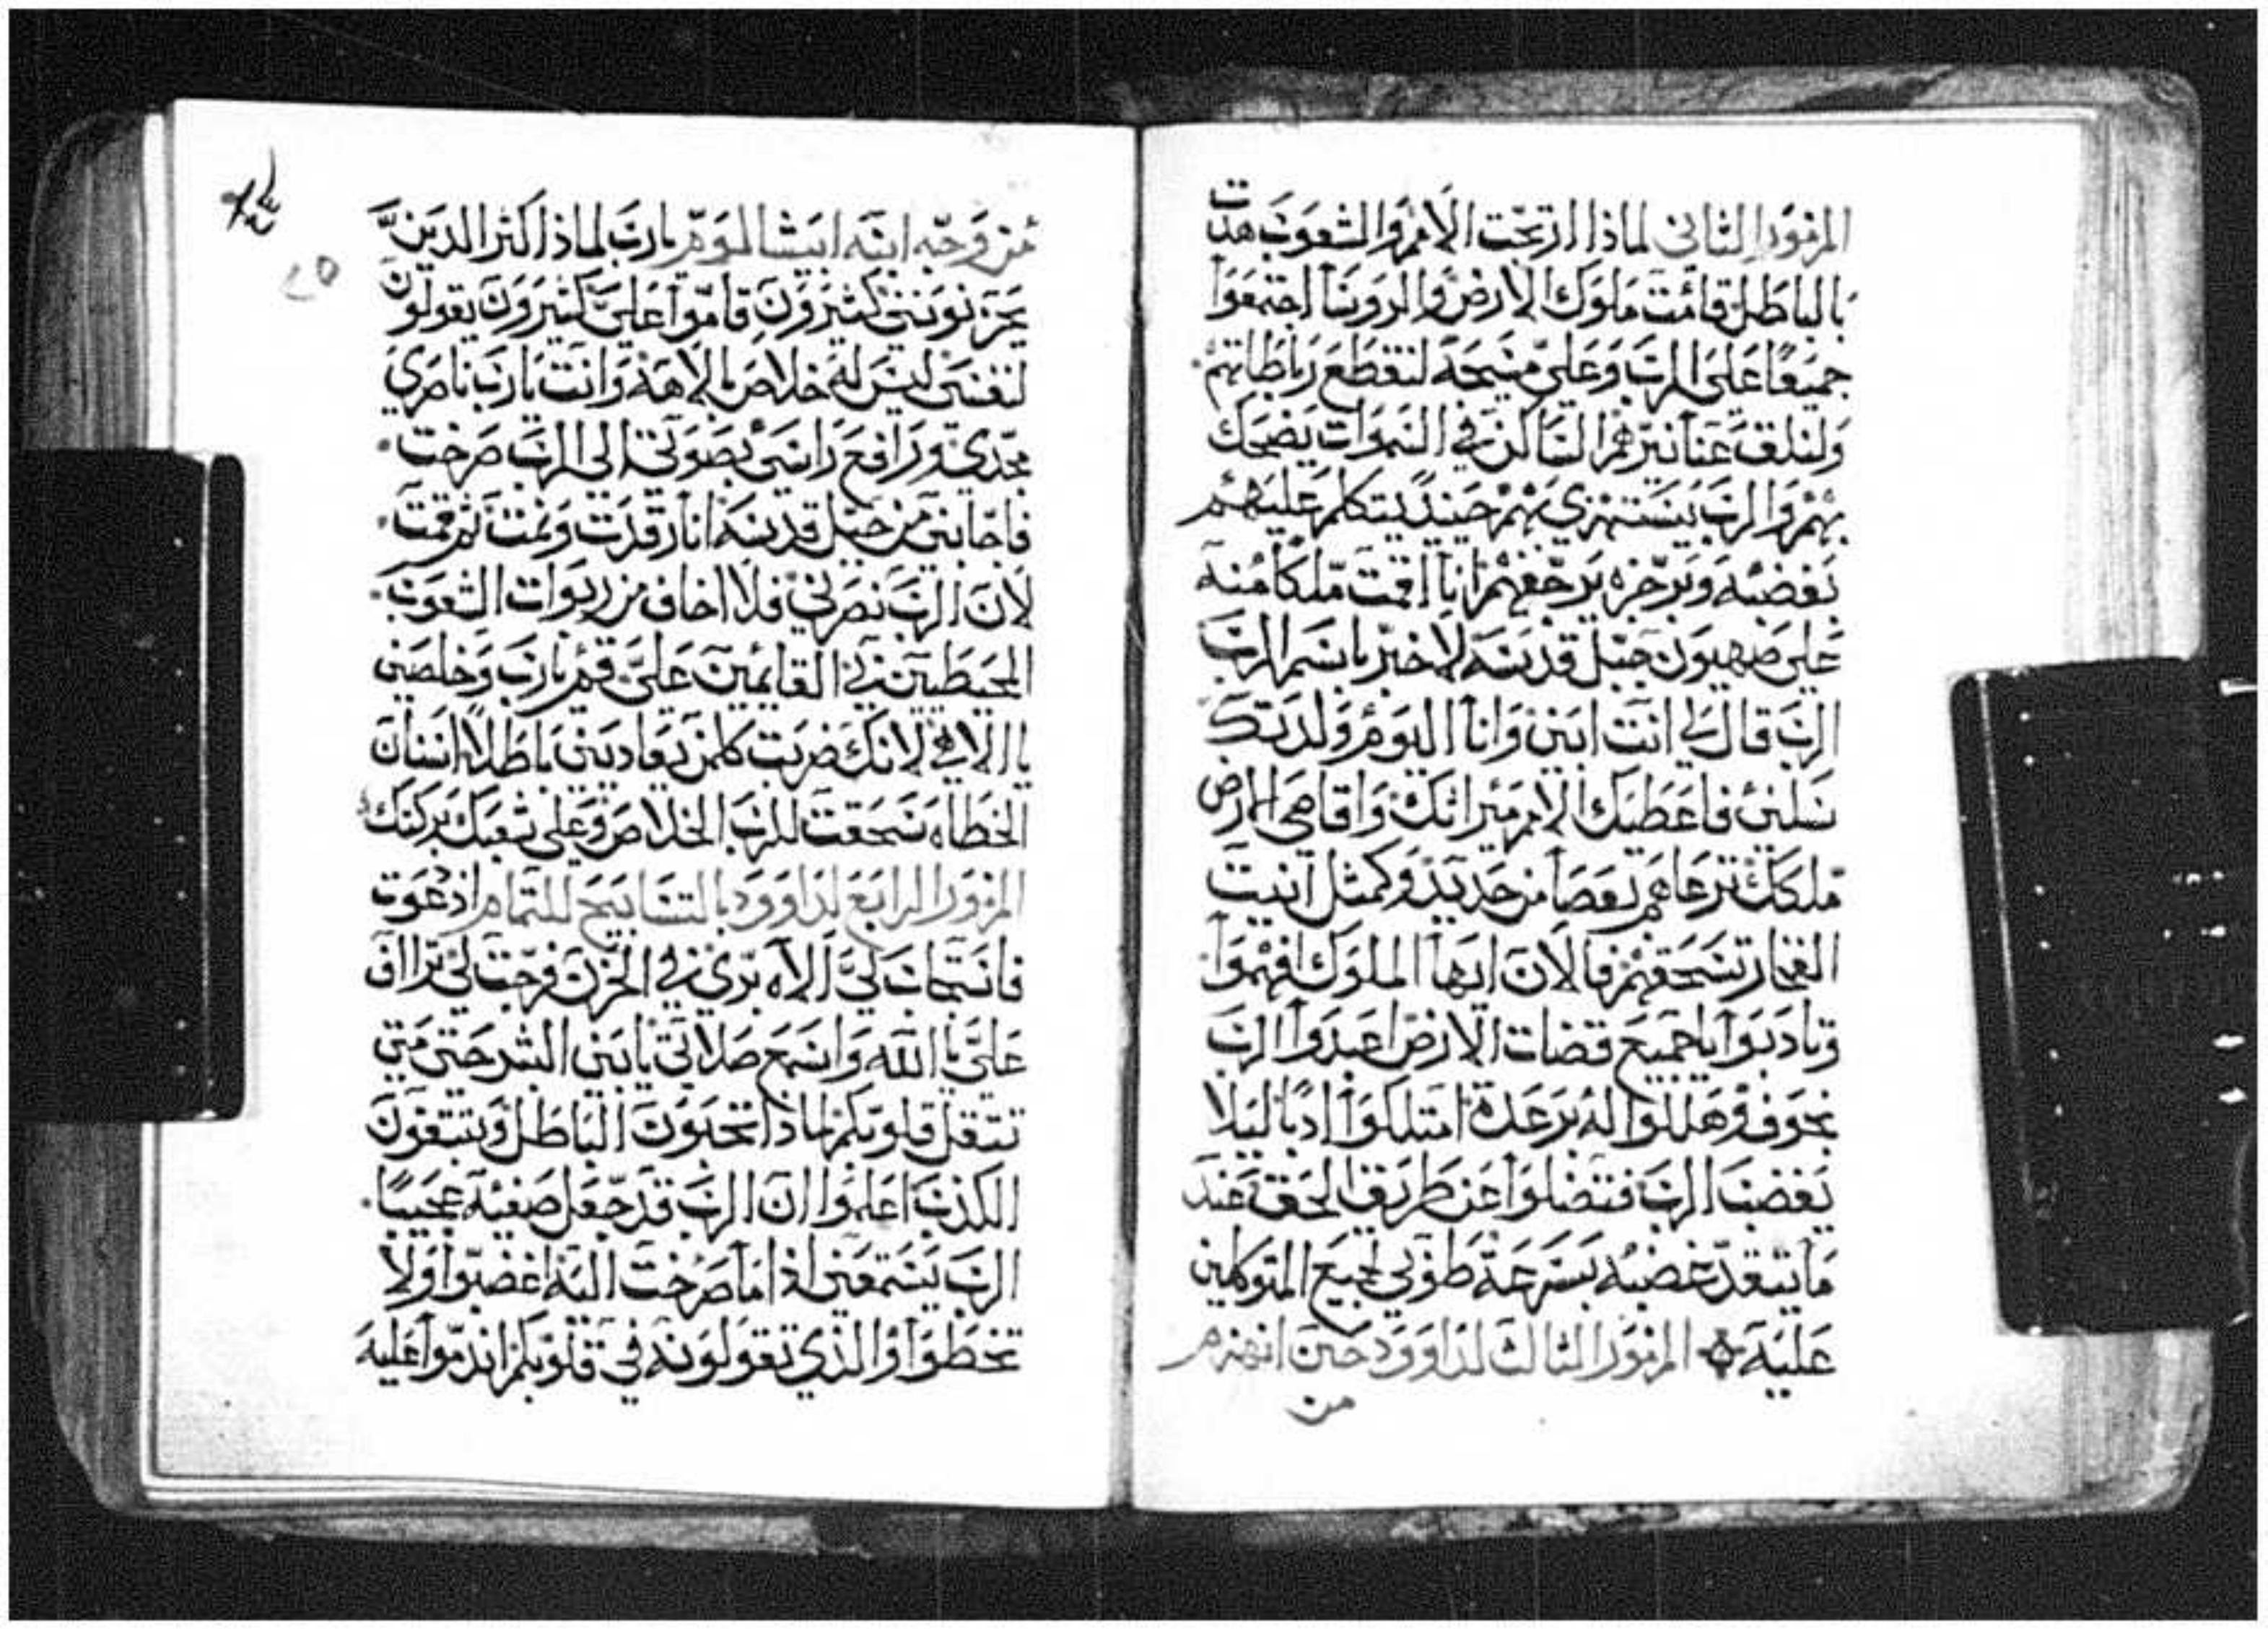 المزمور الثاني لماذا ارتجت الامم والشعوب هدت
بالباطل قامت ملوك الارض والروسا اجتمعوا
جميعًا على الرب وعلى مسيحه لنقطع رباطاتهم
ولنلق عنا نيرهم الساكن في السموات يضحك
بهم والرب يستهزي بهم حينيدٍ يتكلم عليهم
بغضبه وبرجزه يرجفهم انا اقمت ملكًا منه
على صهيون جبل قدسه لاخبر باسم الرب
الرب قال لي انت ابني وانا اليوم ولدتك
سلني فاعطيك الامم ميراتك واقاصي الارض
ملكك ترعاهم بعصا من حديد وكمثل آنيت
الفخار تسحقهم فالان ايها الملوك افهموا
وتادبوا ياجميع قضات الارض اعبدوا الرب
بخوف وهللوا له برعدة امتلكوا ادبًا ليلا
يغضب الرب فتضلوا عن طريق الحق عند
مايتقد غضبه بسرعة طوبي لجميع المتوكلين
عليه المزمور الثالث لداوود حين انهزم
من
من وجه ابنه ابيشالوم يارب لماذا اكثر الدين
يحزنونني كثيرون قاموا علىّ كثيرون يقولون
لنفسي ليس له خلاص بالاهه وانت يارب ناصري
مجدي ورافع راسي بصوتي الى الرب صرخت
فاجابني من جبل قدسه انا رقدت ونمت ثم قمت
لان الرب نصرني فلا اخاف من ربوات الشعوب
المحيطين بي القايمين علىّ قم يارب وخلصني
يا الاهي لانك ضربت كلمن يعاديني باطلاً اسنان
الخطاه سحقت للرب الخلاص وعلى شعبك بركتك
المزمور الرابع لداوود بالتسابيح للتمام اذ دعوت
فاستجاب لي الاه بري في الحزن فرجت لي تراف
علىّ يا الله واسمع صلاتي يابني البشر حتى متي
تثقل قلوبكم لماذا تحبون الباطل وتبتغون
الكذب اعلموا ان الرب قد جعل صفيه عجيبًا
الرب يستمعني اذا ماصرخت اليه اغضبوا ولا
تخطوا والذي تقولونه في قلوبكم اندموا عليه
٢٥